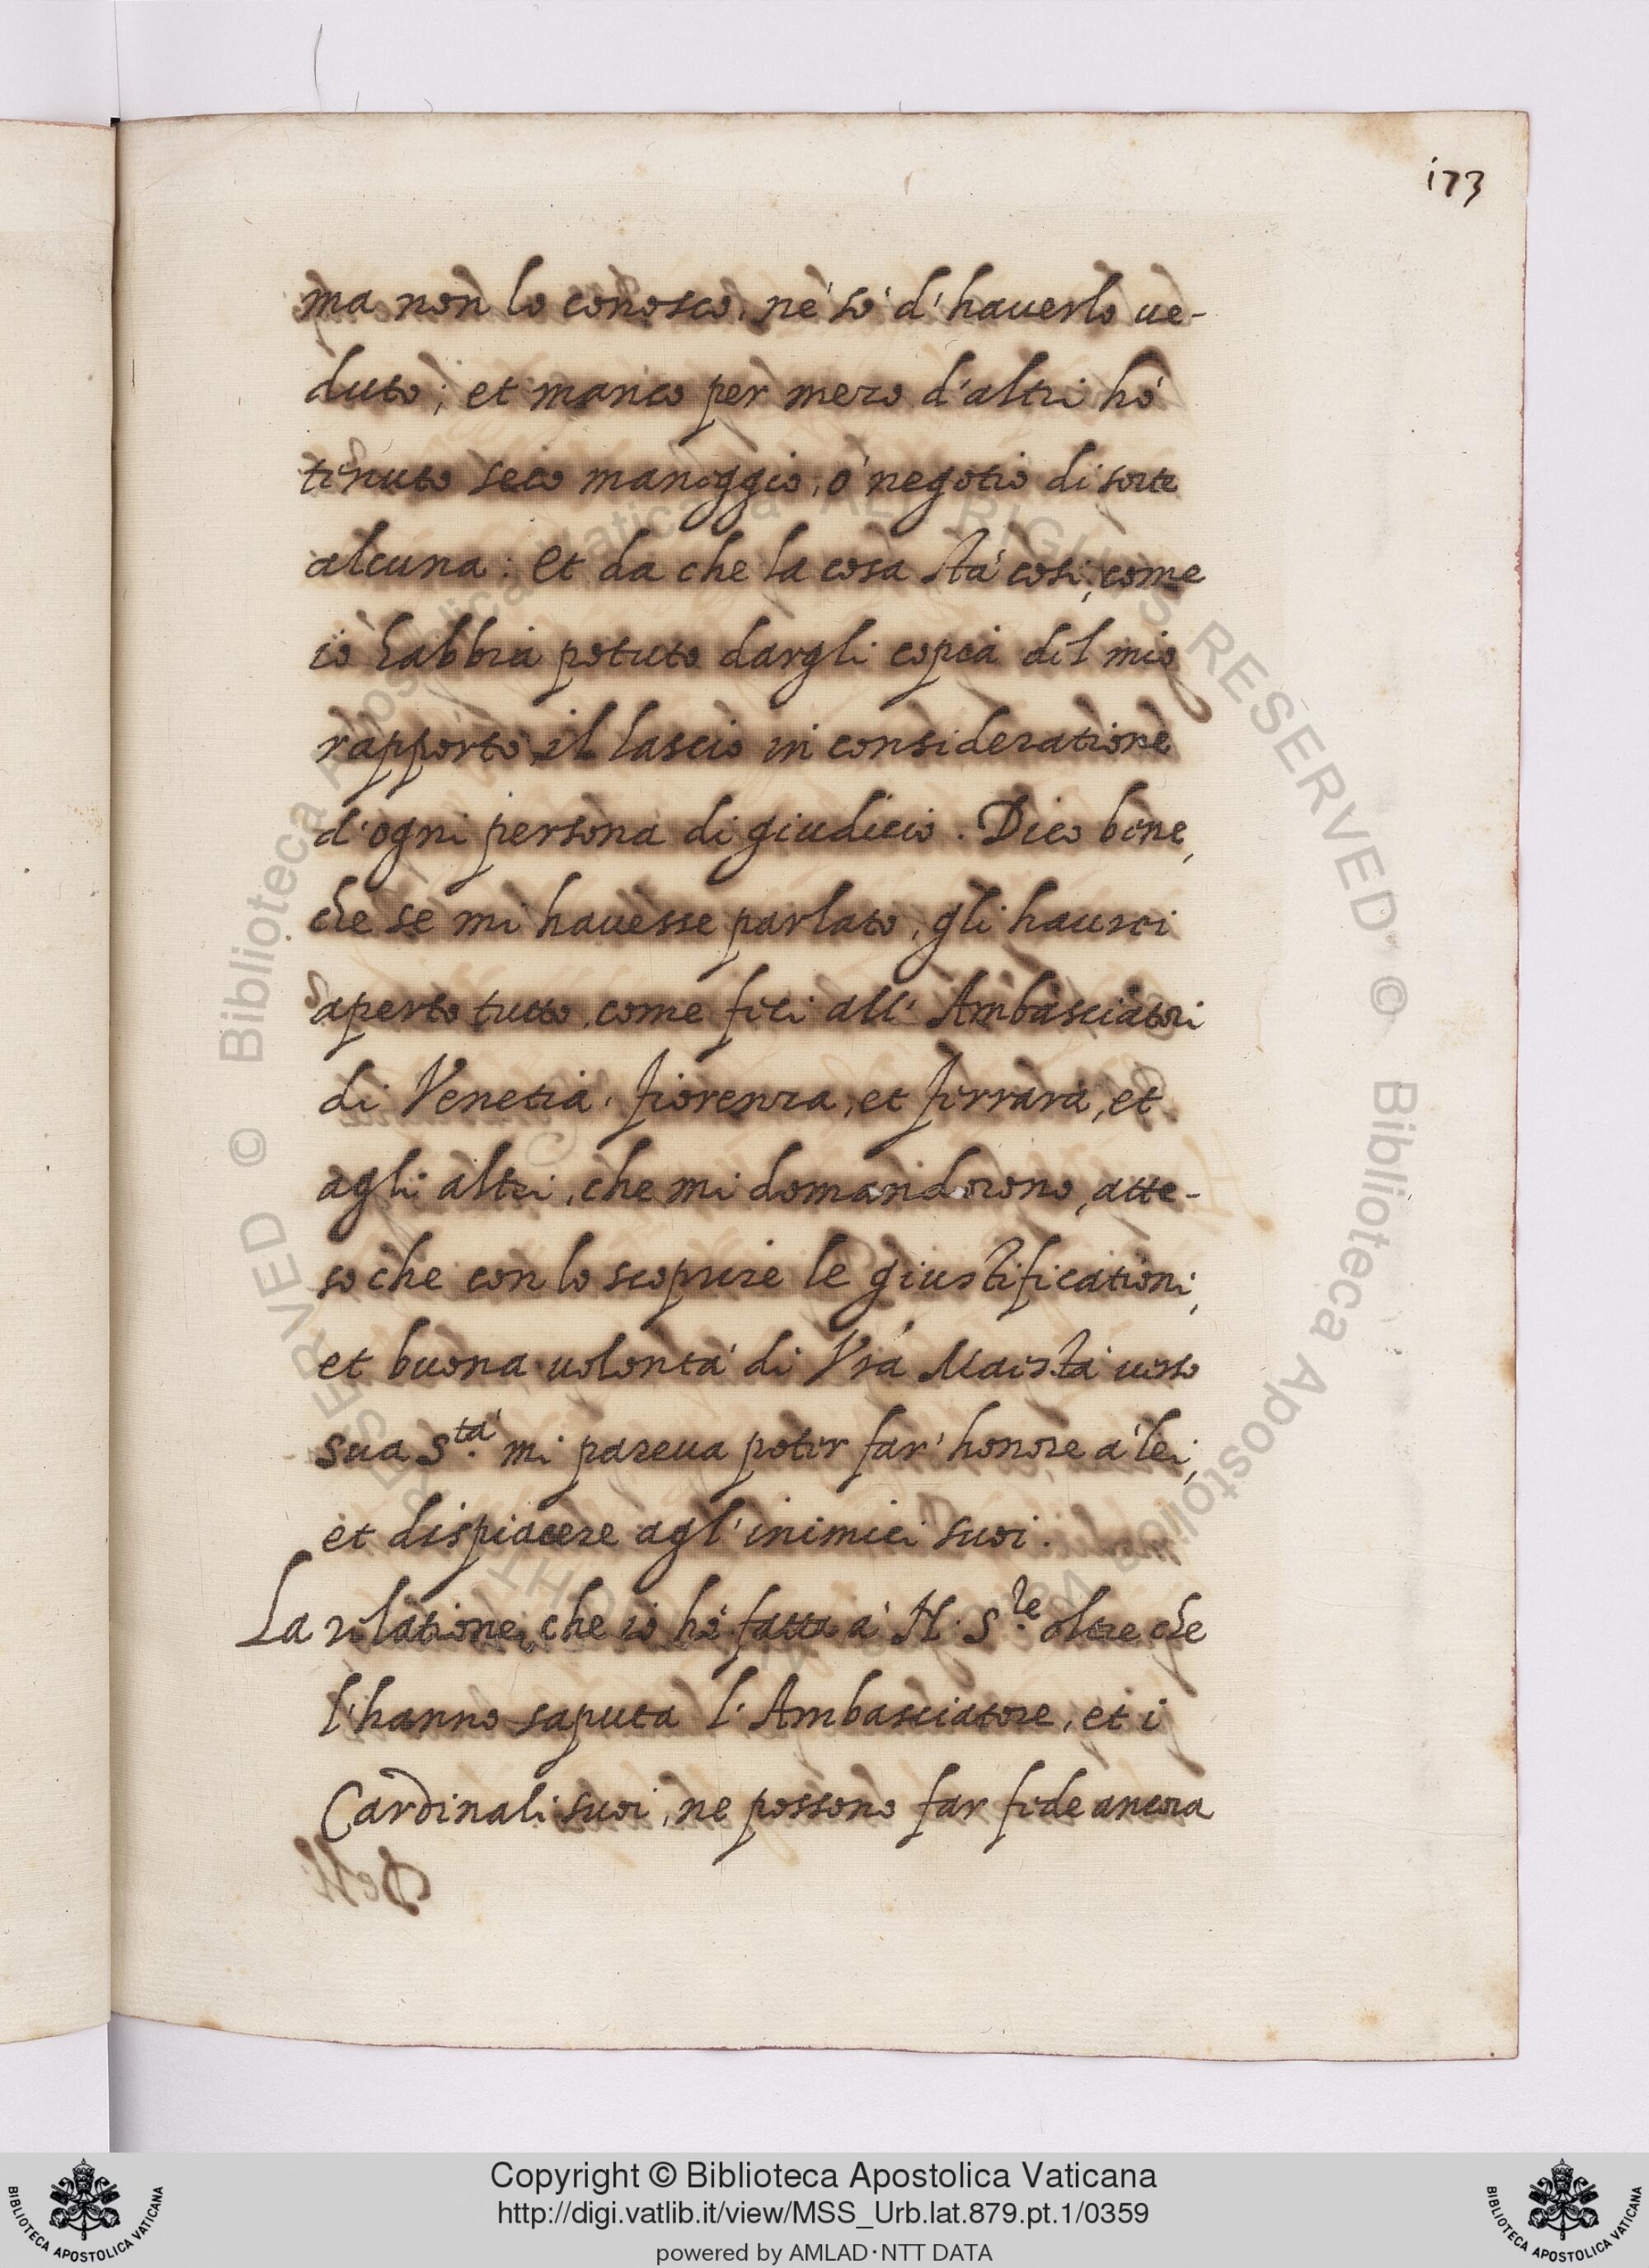 173
ma non lo conosco, nè sò d'hauerlo ue-
duto; et manco per mezo d'altri hò
tenuto seco maneggio, ò negotio di sorte
alcuna: Et da che la cosa stà cosi, come
io habbia potuto dargli copia del mio
rapporto, il lascio in consideratione
d'ogni persona di giudicio. Dico bene,
che se mi hauesse parlato, gli haurei
aperto tutto, come feci all'Ambasciatori
di Venetia, fiorenza, et ferrara, et
agli altri, che mi domandorono, atte-
so che con lo scoprire le giustificationi,
et buona uolontà di Vrà Maestà uerso
sua S.tà mi pareua poter far'honore à lei,
et dispiacere agl'inimici suoi.
La relatione, che io hò fatta à N. S.re oltre che
l'hanno saputa l'Ambasciatore, et i
Cardinali suoi, ne possono far fede ancora
Copyright © Biblioteca Apostolica Vaticana
http://digi.vatlib.it/view/MSS_Urb.lat.879.pt.1/0359
powered by AMLAD·NTT DATA
BIBLIOTECA APOSTOLICA VATICANA
BIBLIOTECA APOSTOLICA VATICANA